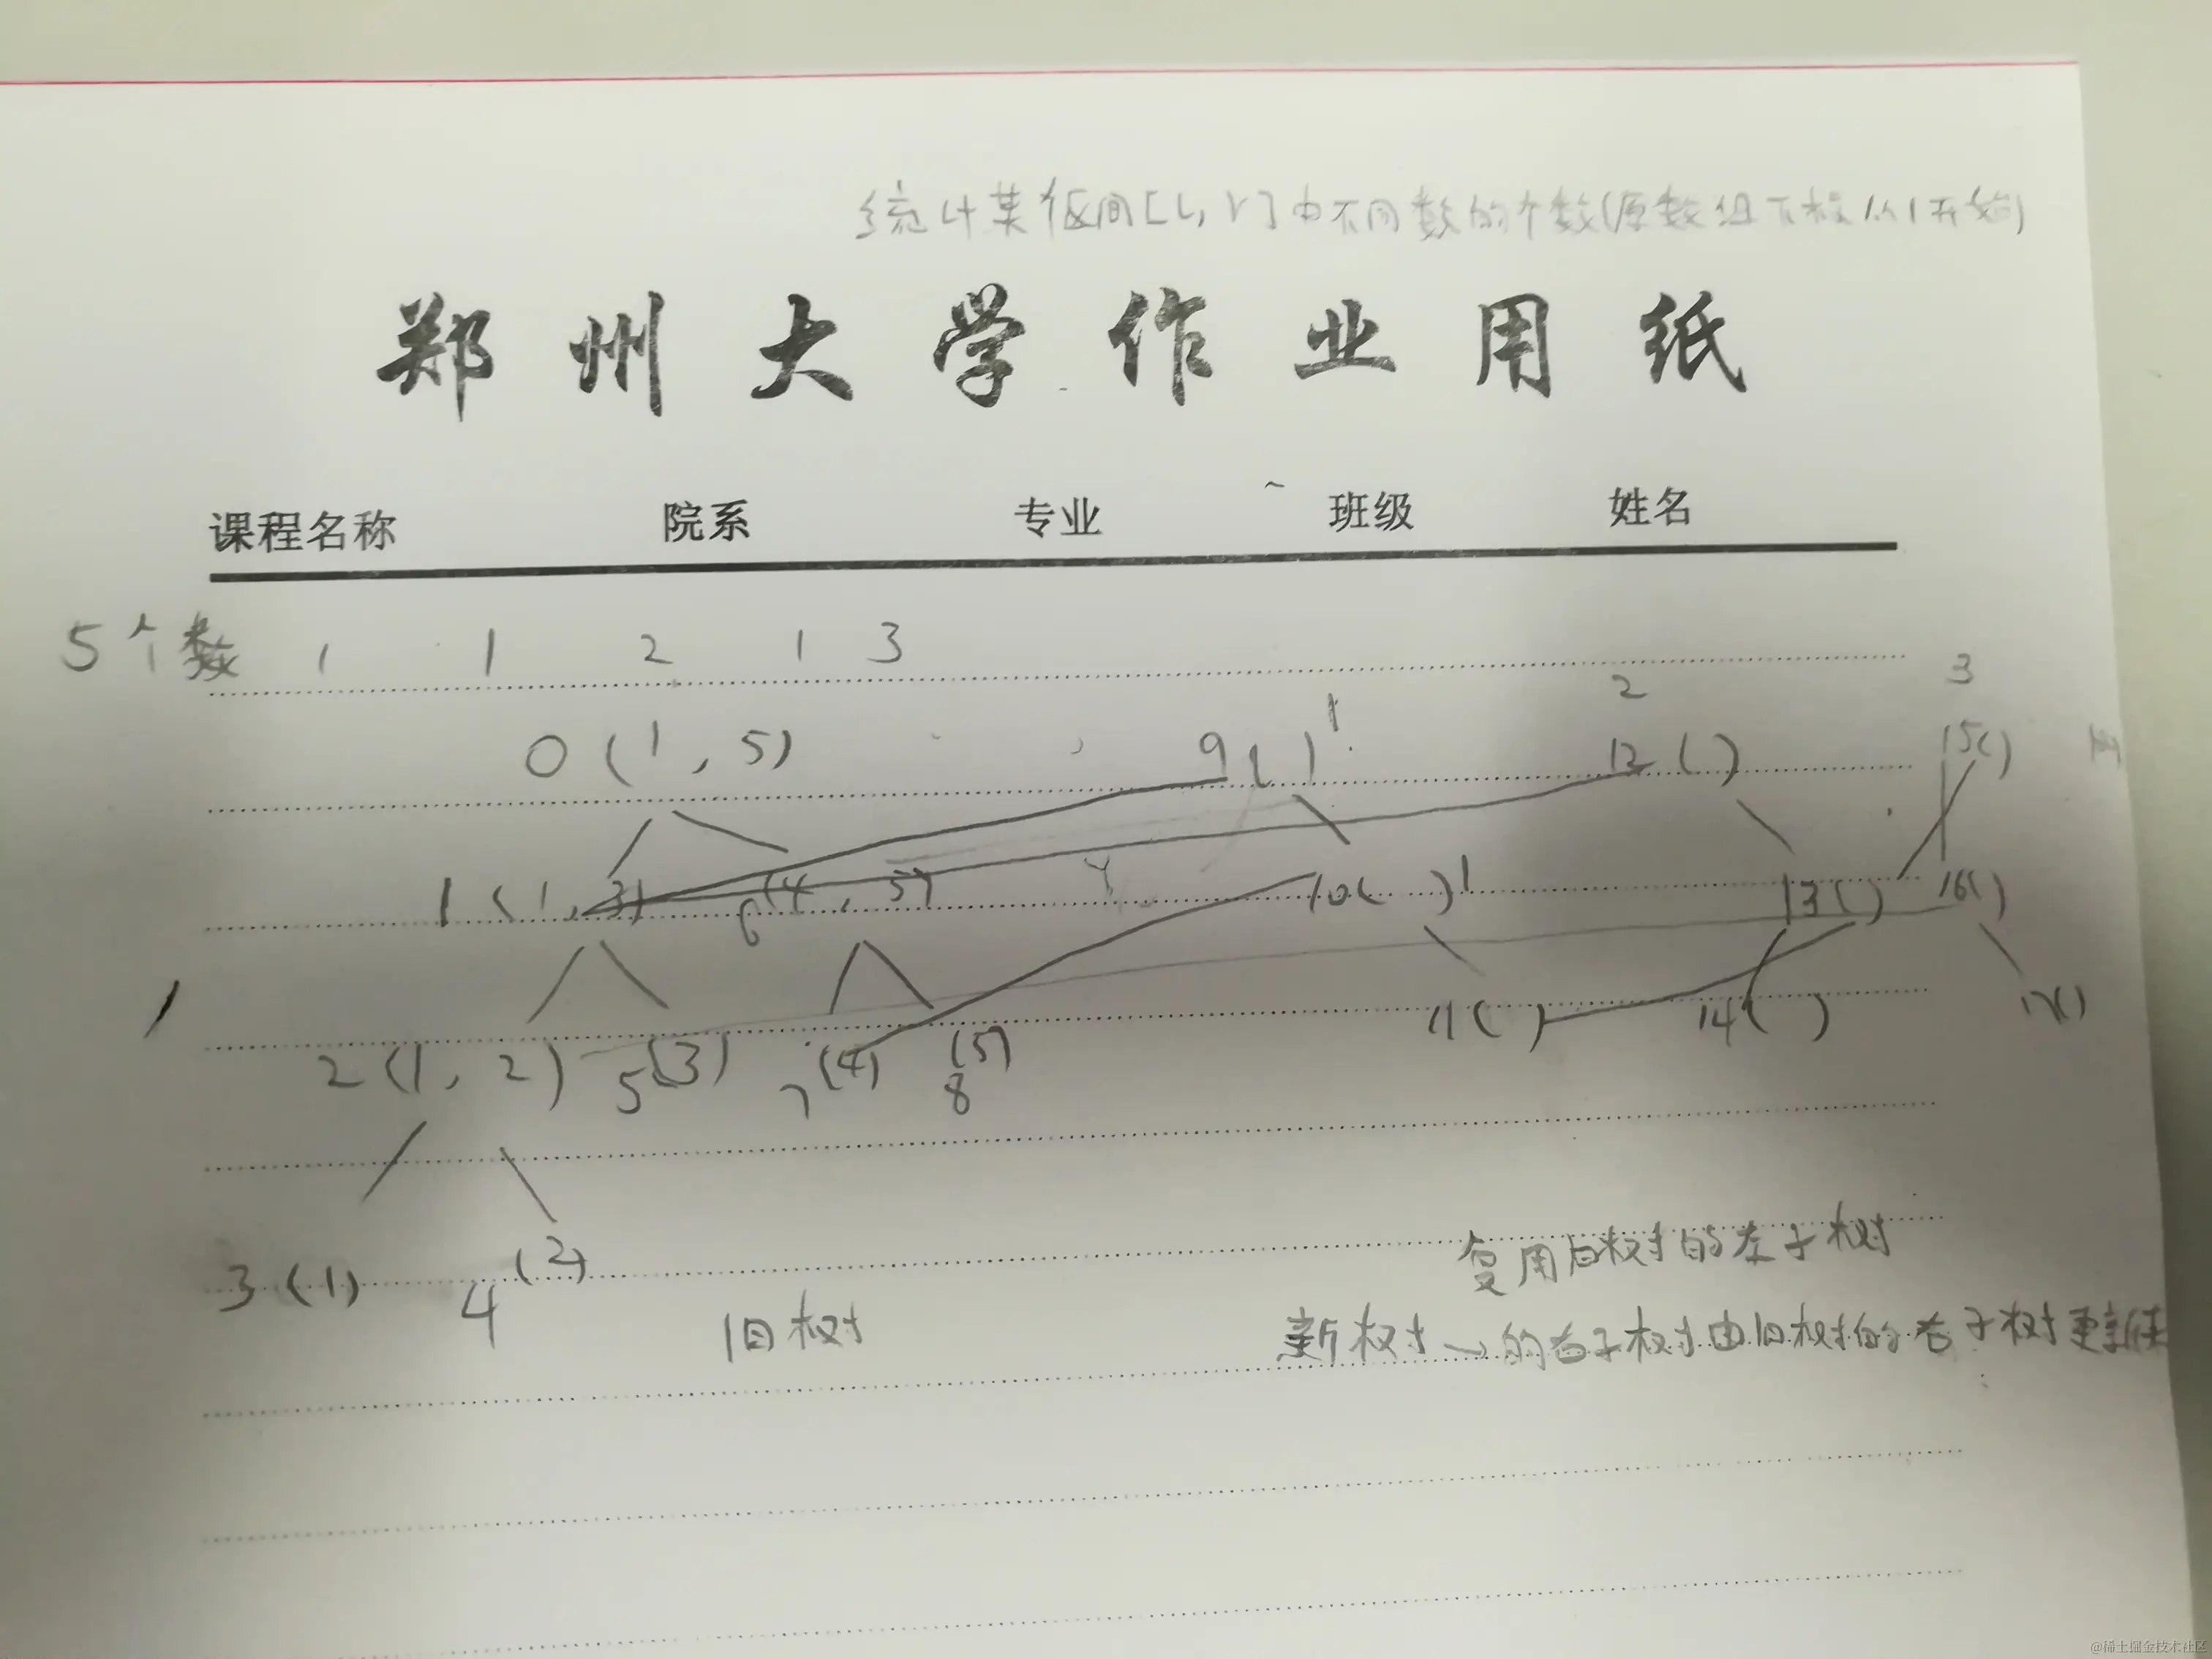 统计某个区间[L,r]内不同数的个数(原数组下标从1开始)
郑州大学作业用纸
课程名称 院系 专业 班级 姓名
5个数 1 1 2 1 3
1 2 3
0(1,5) 9( ) 12( ) 15()
1(1,3) 6(4,5) 10( )1 13() 16()
2(1,2) 5(3) 7(4) 8(5) 11( ) 14( ) 17()
3(1) 4(2)
复用旧树的左子树
旧树 新树→的右子树由旧树的右子树更新
@稀土掘金技术社区